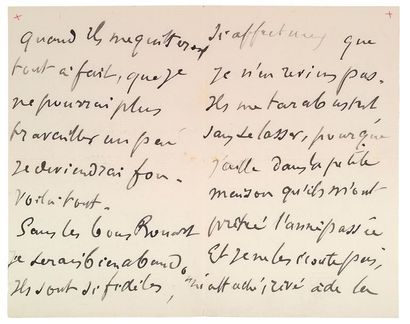 quand ils me quitteront
tout à fait, que je
ne pourrai plus
travailler un peu
je deviendrai fou.
Voilà tout.
Sans les bons Rouart
je serais bien abando
Ils sont si fidèles,
si affectueux que
je n'en reviens pas.
Ils me tarabustent
sans se lasser, pour que
j'aille dans la petite
maison qu'ils m'ont
prêtée l'année passée
Et je ne les écoute pas,
attaché, rivé à de la